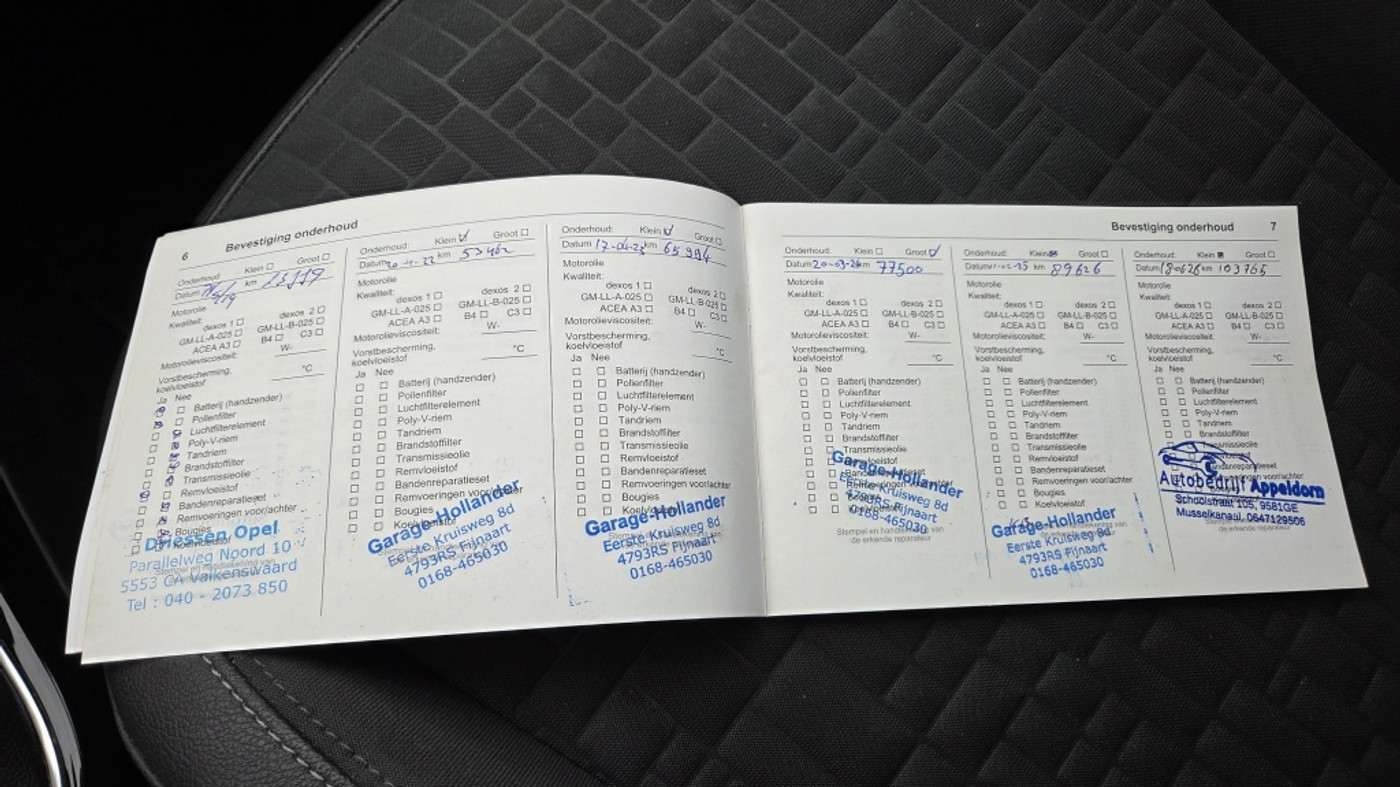 6
Bevestiging onderhoud
Onderhoud: Klein Groot
Datum km
Motorolie
Kwaliteit:
dexos 1 dexos 2
GM-LL-A-025 GM-LL-B-025
ACEA A3 B4 C3
Motorolieviscositeit: W-
Vorstbescherming,
koelvloeistof °C
Ja Nee
Batterij (handzender)
Pollenfilter
Luchtfilterelement
Poly-V-riem
Tandriem
Brandstoffilter
Transmissieolie
Remvloeistof
Bandenreparatieset
Remvoeringen voor/achter
Bougies
Driessen Opel
Parallelweg Noord 10
5553 CA Valkenswaard
Tel : 040 - 2073 850
Onderhoud: Klein Groot
Datum km 53462
Motorolie
Kwaliteit:
dexos 1 dexos 2
GM-LL-A-025 GM-LL-B-025
ACEA A3 B4 C3
Motorolieviscositeit: W-
Vorstbescherming,
koelvloeistof °C
Ja Nee
Batterij (handzender)
Pollenfilter
Luchtfilterelement
Poly-V-riem
Tandriem
Brandstoffilter
Transmissieolie
Remvloeistof
Bandenreparatieset
Remvoeringen voor/achter
Bougies
Koelvloeistof
Garage-Hollander
Eerste Kruisweg 8d
4793RS Fijnaart
0168-465030
Onderhoud: Klein Groot
Datum 17-04-23 km 65994
Motorolie
Kwaliteit:
dexos 1 dexos 2
GM-LL-A-025 GM-LL-B-025
ACEA A3 B4 C3
Motorolieviscositeit: W-
Vorstbescherming,
koelvloeistof °C
Ja Nee
Batterij (handzender)
Pollenfilter
Luchtfilterelement
Poly-V-riem
Tandriem
Brandstoffilter
Transmissieolie
Remvloeistof
Bandenreparatieset
Remvoeringen voor/achter
Bougies
Koelvloeistof
Garage-Hollander
Eerste Kruisweg 8d
4793RS Fijnaart
0168-465030
Bevestiging onderhoud 7
Onderhoud: Klein Groot
Datum km 77500
Motorolie
Kwaliteit:
dexos 1 dexos 2
GM-LL-A-025 GM-LL-B-025
ACEA A3 B4 C3
Motorolieviscositeit: W-
Vorstbescherming,
koelvloeistof °C
Ja Nee
Batterij (handzender)
Pollenfilter
Luchtfilterelement
Poly-V-riem
Tandriem
Brandstoffilter
Transmissieolie
Garage-Hollander
Eerste Kruisweg 8d
4793RS Fijnaart
0168-465030
Stempel en handtekening van
de erkende reparateur
Onderhoud: Klein Groot
Datum km 89626
Motorolie
Kwaliteit:
dexos 1 dexos 2
GM-LL-A-025 GM-LL-B-025
ACEA A3 B4 C3
Motorolieviscositeit: W-
Vorstbescherming,
koelvloeistof °C
Ja Nee
Batterij (handzender)
Pollenfilter
Luchtfilterelement
Poly-V-riem
Tandriem
Brandstoffilter
Transmissieolie
Remvloeistof
Bandenreparatieset
Remvoeringen voor/achter
Bougies
Koelvloeistof
Garage-Hollander
Eerste Kruisweg 8d
4793RS Fijnaart
0168-465030
Onderhoud: Klein Groot
Datum km 103765
Motorolie
Kwaliteit:
dexos 1 dexos 2
GM-LL-A-025 GM-LL-B-025
ACEA A3 B4 C3
Motorolieviscositeit: W-
Vorstbescherming,
koelvloeistof °C
Ja Nee
Batterij (handzender)
Pollenfilter
Luchtfilterelement
Poly-V-riem
Tandriem
Brandstoffilter
Transmissieolie
Bandenreparatieset
Autobedrijf Appeldorn
Schoolstraat 105, 9581GE
Musselkanaal, 0647129506
Stempel en handtekening van
de erkende reparateur